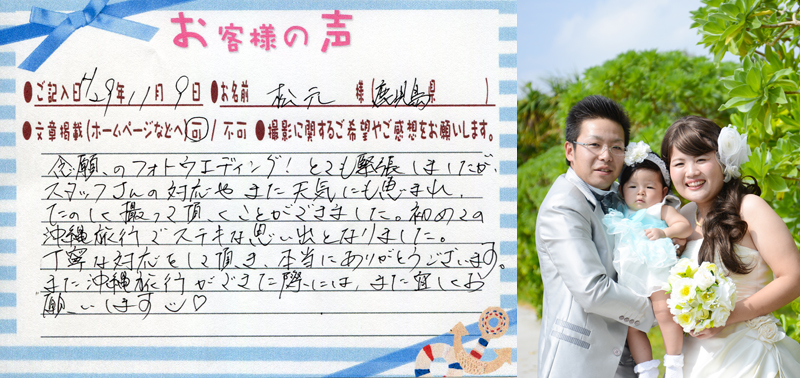 お客様の声
●ご記入日 H29年11月9日 ●お名前 松元 様(鹿児島県 )
●文章掲載(ホームページなどへ 可 / 不可 ●撮影に関するご希望やご感想をお願いします。
念願のフォトウエディング!とても緊張しましたが、
スタッフさんの対応やまた天気にも恵まれ、
たのしく撮って頂くことができました。初めての
沖縄旅行でステキな思い出となりました。
丁寧な対応をして頂き、本当にありがとうございます。
また沖縄旅行ができた際には、また宜しくお
願いします